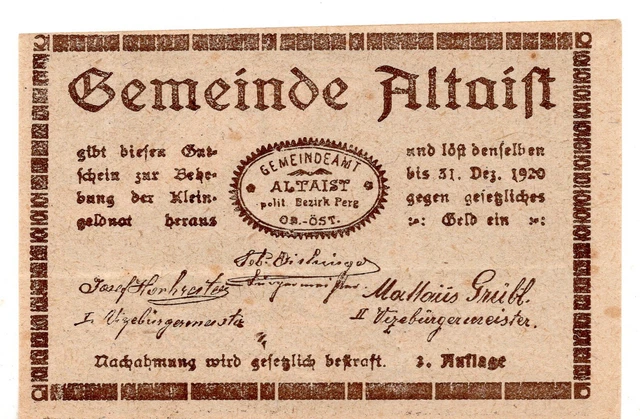 Gemeinde Altaist
gibt diesen Gut-
schein zur Behe-
bung der Klein-
geldnot heraus
GEMEINDEAMT
ALTAIST
polit. Bezirk Perg
OB.-ÖST.
und löst denselben
bis 31. Dez. 1920
gegen gesetzliches
:: Geld ein ::
Bürgermeister
Josef
I. Vizebürgermeister
Mathäus Grübl
II Vizebürgermeister.
Nachahmung wird gesetzlich bestraft. 3. Auflage